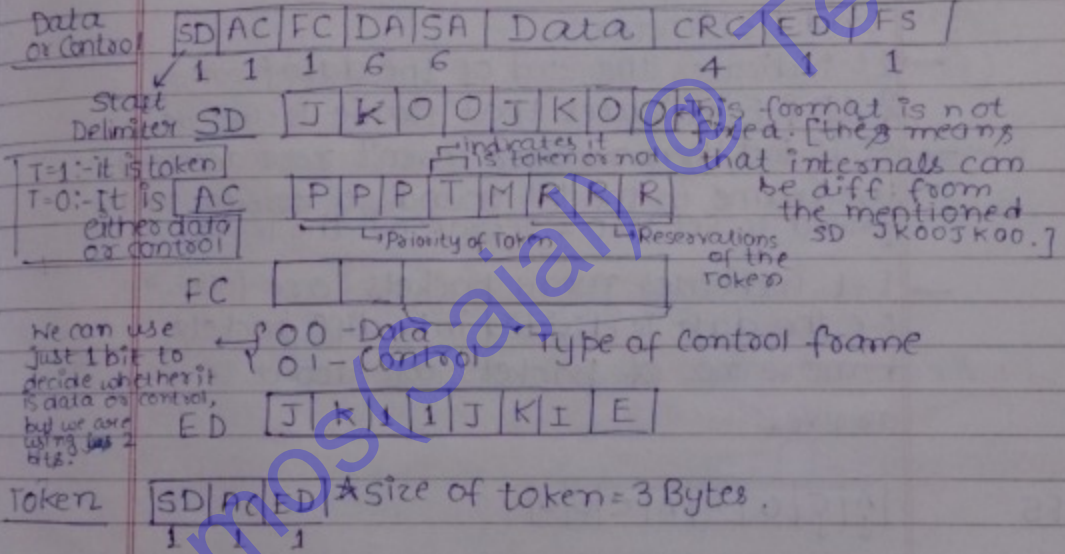 Data
or Control
SD AC FC DA SA Data CRC ED FS
1 1 1 6 6 4 1 1
Start
Delimiter SD
J K 0 0 J K 0 0
This format is not
fixed. [they means
that internals can
be diff from
the mentioned
SD JK00JK00.]
indicates it
is token or not
T=1:-it is token
T=0:-It is
either data
or control
AC
P P P T M R R R
Priority of Token
Reservations
of the
Token
FC
we can use
just 1 bit to
decide whether it
is data or control,
but we are
using 2
bits.
00 - Data
01 - Control
Type of control frame
ED
J K 1 1 J K I E
Token
SD AC ED
1 1 1
*Size of token = 3 Bytes.
mos(Sajal) @ Te